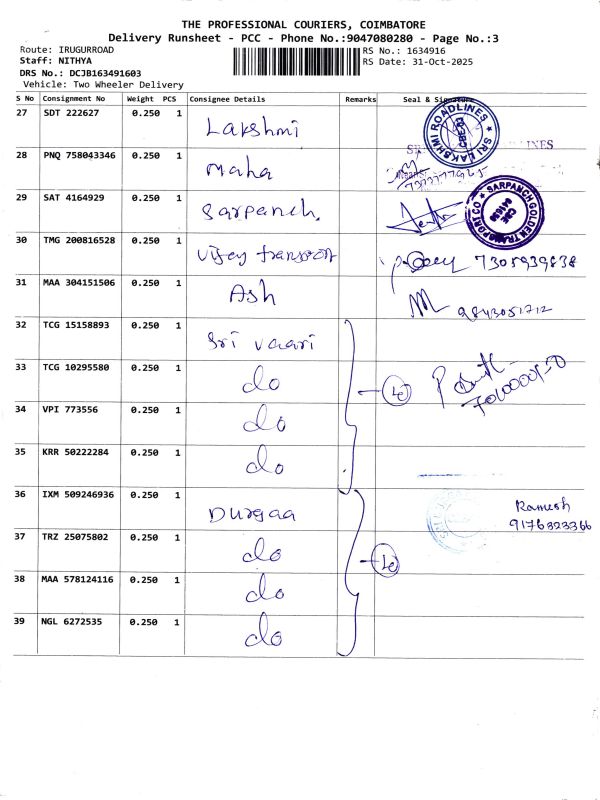 THE PROFESSIONAL COURIERS, COIMBATORE
Delivery Runsheet - PCC - Phone No.:9047080280 - Page No.:3
Route: IRUGURROAD
RS No.: 1634916
Staff: NITHYA
RS Date: 31-Oct-2025
DRS No.: DCJB163491603
Vehicle: Two Wheeler Delivery
S No Consignment No Weight PCS Consignee Details Remarks Seal & Signature
27 SDT 222627 0.250 1 Lakshmi
SRI LAKSHMI ROADLINES
28 PNQ 758043346 0.250 1 Maha
29 SAT 4164929 0.250 1 Sarpanch.
SARPANCH GOLDEN TRANSPORT CO
30 TMG 200816528 0.250 1 Vijay transport 7305939838
31 MAA 304151506 0.250 1 Ash 9843051712
32 TCG 15158893 0.250 1 Sri vaari
33 TCG 10295580 0.250 1 do
34 VPI 773556 0.250 1 do
35 KRR 50222284 0.250 1 do
36 IXM 509246936 0.250 1 Durgaa Ramesh
9176323366
37 TRZ 25075802 0.250 1 do
38 MAA 578124116 0.250 1 do
39 NGL 6272535 0.250 1 do